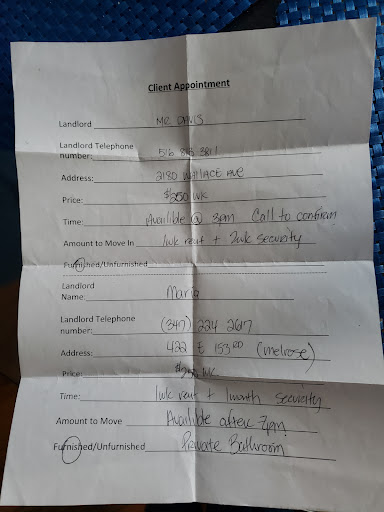 Client Appointment
Landlord MR DAVIS
Landlord Telephone
number: 516
Address: 2180 WALLACE AVE
Price: $250 WK
Time: Availible @ 3pm Call to confirm
Amount to Move In 1wk rent + 2wk security
Furnished/Unfurnished
Landlord
Name: Maria
Landlord Telephone
number: (347) 224 2617
Address: 422 E 153RD (melrose)
Price: $250 WK
Time: 1wk rent + 1month security
Amount to Move Availible after 7pm
Furnished/Unfurnished Private Bathroom